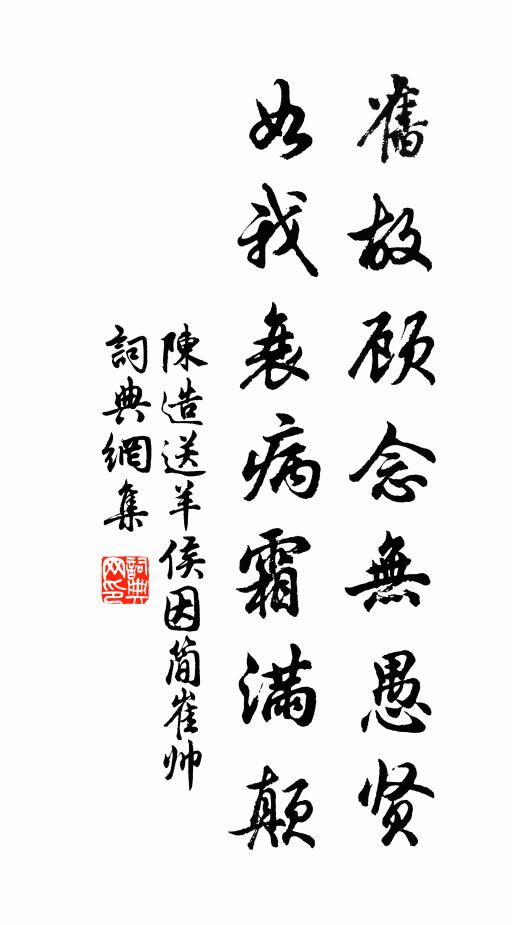 舊故顾念無愚贤
如我衰病霜满颠
陳造送羊侯因简崔帅
詞典網集
詞典网印